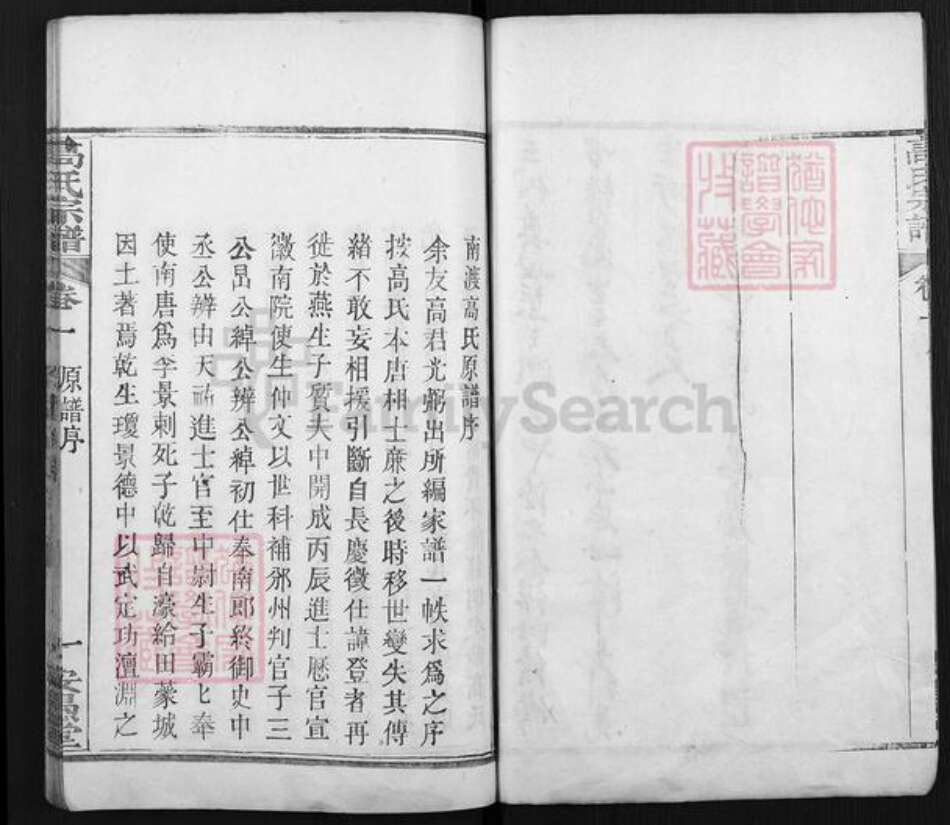 南渡高氏原譜序
余友高君光弼出所編家譜一帙求爲之序
按高氏本唐相士廉之後時移世變失其傳
緒不敢妄相援引斷自長慶徵仕諱登者再
徙於燕生子質夫中開成丙辰進士歷官宣
徽南院使生仲文以世科補邠州判官子三
公昂公綽公辨公綽初仕奉南郎終御史中
丞公辨由天祐進士官至中尉生子霸匕奉
使南唐爲李景刺死子乾歸自濠給田蒙城
因土著焉乾生瓊景德中以武定功澶淵之
高氏宗譜
卷一
原譜序
一
高氏宗譜
卷一
譜學會
收藏
FamilySearch